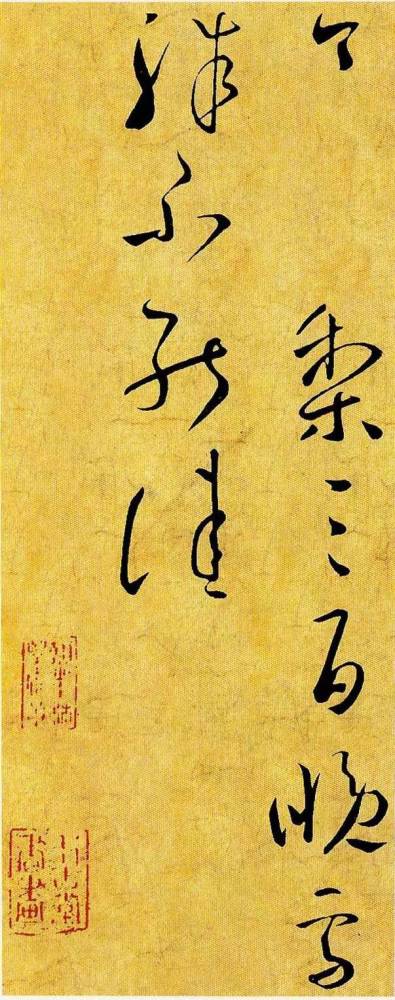 今梨三百晚雪
殊不能佳